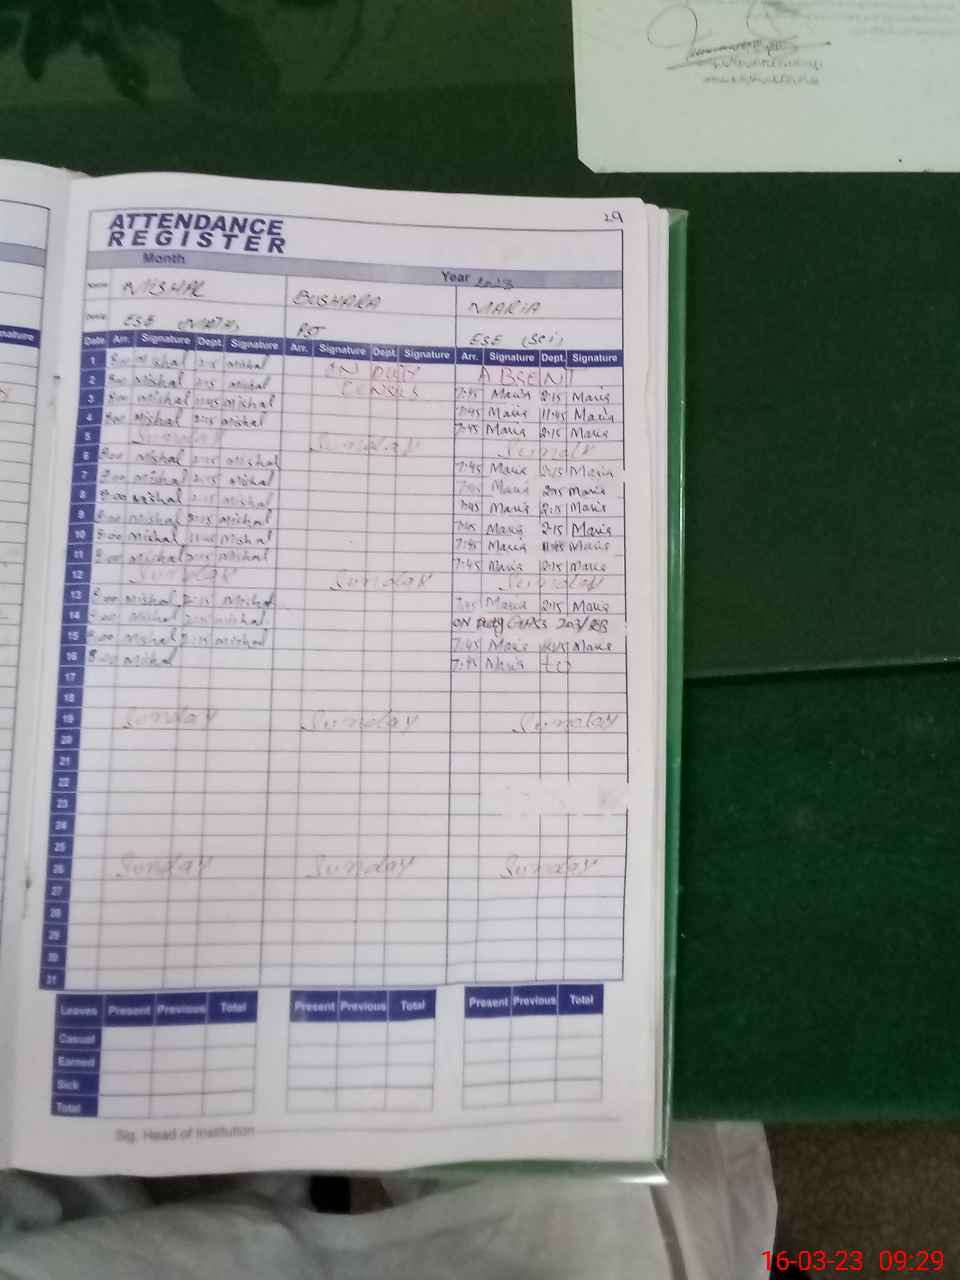 29
ATTENDANCE
REGISTER
Month
Year 2023
Name MISHAL BUSHARA MARIA
ESE (MATH) PST ESE (Sci)
nature
Date Arr. Signature Dept. Signature Arr. Signature Dept. Signature Arr. Signature Dept. Signature
1 8:00 Mishal 2:15 Mishal ON DUTY ABSENT
2 8:00 Mishal 2:15 Mishal CENSUS 7:45 Maria 2:15 Maria
3 8:00 Mishal 11:45 Mishal 7:45 Maria 11:45 Maria
4 8:00 Mishal 2:15 Mishal 7:45 Maria 2:15 Maria
5 Sunday Sunday Sunday
6 8:00 Mishal 2:15 Mishal 7:45 Maria 2:15 Maria
7 8:00 Mishal 2:15 Mishal 7:45 Maria 2:15 Maria
8 8:00 Mishal 2:15 Mishal 7:45 Maria 2:15 Maria
9 8:00 Mishal 2:15 Mishal 7:45 Maria 2:15 Maria
10 8:00 Mishal 11:45 Mishal 7:45 Maria 11:45 Maria
11 8:00 Mishal 2:15 Mishal 7:45 Maria 2:15 Maria
12 Sunday Sunday Sunday
13 8:00 Mishal 2:15 Mishal 7:45 Maria 2:15 Maria
14 8:00 Mishal 2:15 Mishal ON Duty
15 8:00 Mishal 2:15 Mishal 7:45 Maria Maria
16 8:00 Mishal 7:45 Maria
17
18
19 Sunday Sunday Sunday
20
21
22
23
24
25
26 Sunday Sunday Sunday
27
28
29
30
31
Leaves Present Previous Total Present Previous Total Present Previous Total
Casual
Earned
Sick
Total
Sig. Head of Institution
16-03-23 09:29